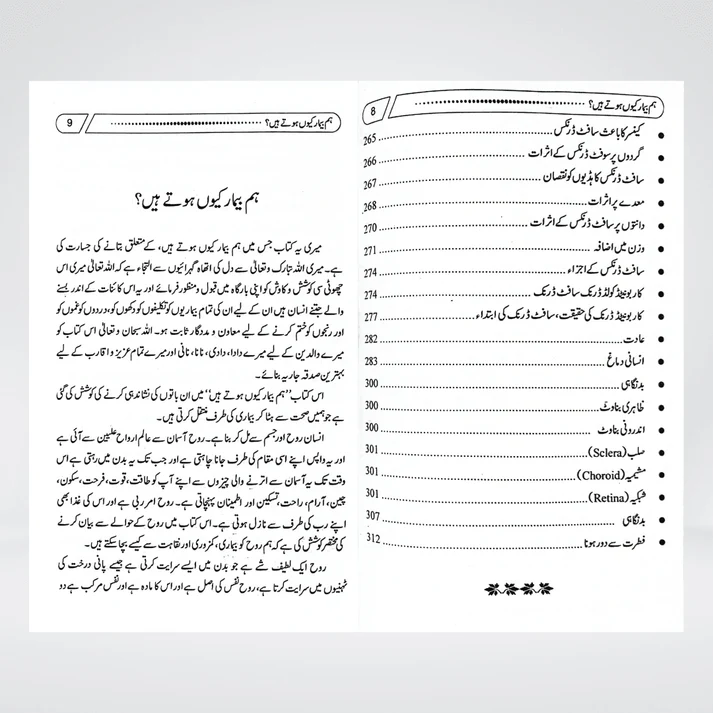 ہم بیمار کیوں ہوتے ہیں؟ 8
کینسر کا باعث سافٹ ڈرنکس 265
گردوں پر سوفٹ ڈرنکس کے اثرات 266
سافٹ ڈرنکس کا ہڈیوں کو نقصان 267
معدے پر اثرات 268
دانتوں پر سافٹ ڈرنکس کے اثرات 270
وزن میں اضافہ 271
سافٹ ڈرنکس کے اجزاء 274
کاربونیٹڈ کولڈ ڈرنک سافٹ ڈرنک 274
کاربونیٹڈ ڈرنک کی حقیقت، سافٹ ڈرنک کی ابتداء 277
عادت 282
انسانی دماغ 283
بدنگاہی 300
ظاہری بناوٹ 300
اندرونی بناوٹ 300
صلب (Sclera) 301
مشیمیہ (Choroid) 301
شبکیہ (Retina) 301
بدنگاہی 307
فطرت سے دور ہونا 312
ہم بیمار کیوں ہوتے ہیں؟ 9
ہم بیمار کیوں ہوتے ہیں؟
میری یہ کتاب جس میں ہم بیمار کیوں ہوتے ہیں، کے متعلق بتانے کی جسارت کی
ہے۔ میری اللہ تبارک وتعالیٰ سے دل کی اتھاہ گہرائیوں سے التجاء ہے کہ اللہ تعالیٰ میری اس
چھوٹی سی کوشش و کاوش کو اپنی بارگاہ میں قبول ومنظور فرمائے اور یہ اس کائنات کے اندر بسنے
والے جتنے انسان ہیں ان کے لیے ان کی تمام بیماریوں کو تکلیفوں کو دکھوں کو، دردوں کو غموں کو
اور رنجوں کو ختم کرنے کے لیے معاون و مددگار ثابت ہو۔ اللہ سبحان وتعالیٰ اس کتاب کو
میرے والدین کے لیے میرے دادا، دادی، نانا، نانی اور میرے تمام عزیز و اقارب کے لیے
بہترین صدقہ جاریہ بنائے۔
اس کتاب "ہم بیمار کیوں ہوتے ہیں" میں ان باتوں کی نشاندہی کرنے کی کوشش کی گئی
ہے جو ہمیں صحت سے ہٹا کر بیماری کی طرف منتقل کرتی ہیں۔
انسان روح اور جسم سے مل کر بنا ہے۔ روح آسمان سے عالم ارواح علیین سے آئی ہے
اور یہ واپس اپنے اسی مقام کی طرف جانا چاہتی ہے اور جب تک یہ بدن میں رہتی ہے اس
وقت تک یہ آسمان سے اترنے والی چیزوں سے اپنے آپ کو طاقت، قوت، فرحت، سکون،
چین، آرام، راحت، تسکین اور اطمینان پہنچاتی ہے۔ روح امر ربی ہے اور اس کی غذا بھی
اپنے رب کی طرف سے نازل ہوتی ہے۔ اس کتاب میں روح کے حوالے سے بیان کرنے
کی مختصر کوشش کی ہے کہ ہم روح کو بیماری، کمزوری اور نقاہت سے کیسے بچا سکتے ہیں۔
روح ایک لطیف شے ہے جو بدن میں ایسے سرایت کرتی ہے جیسے پانی درخت کی
ٹہنیوں میں سرایت کرتا ہے، روح نفس کی اصل ہے اور اس کا مادہ ہے اور نفس مرکب ہے دو